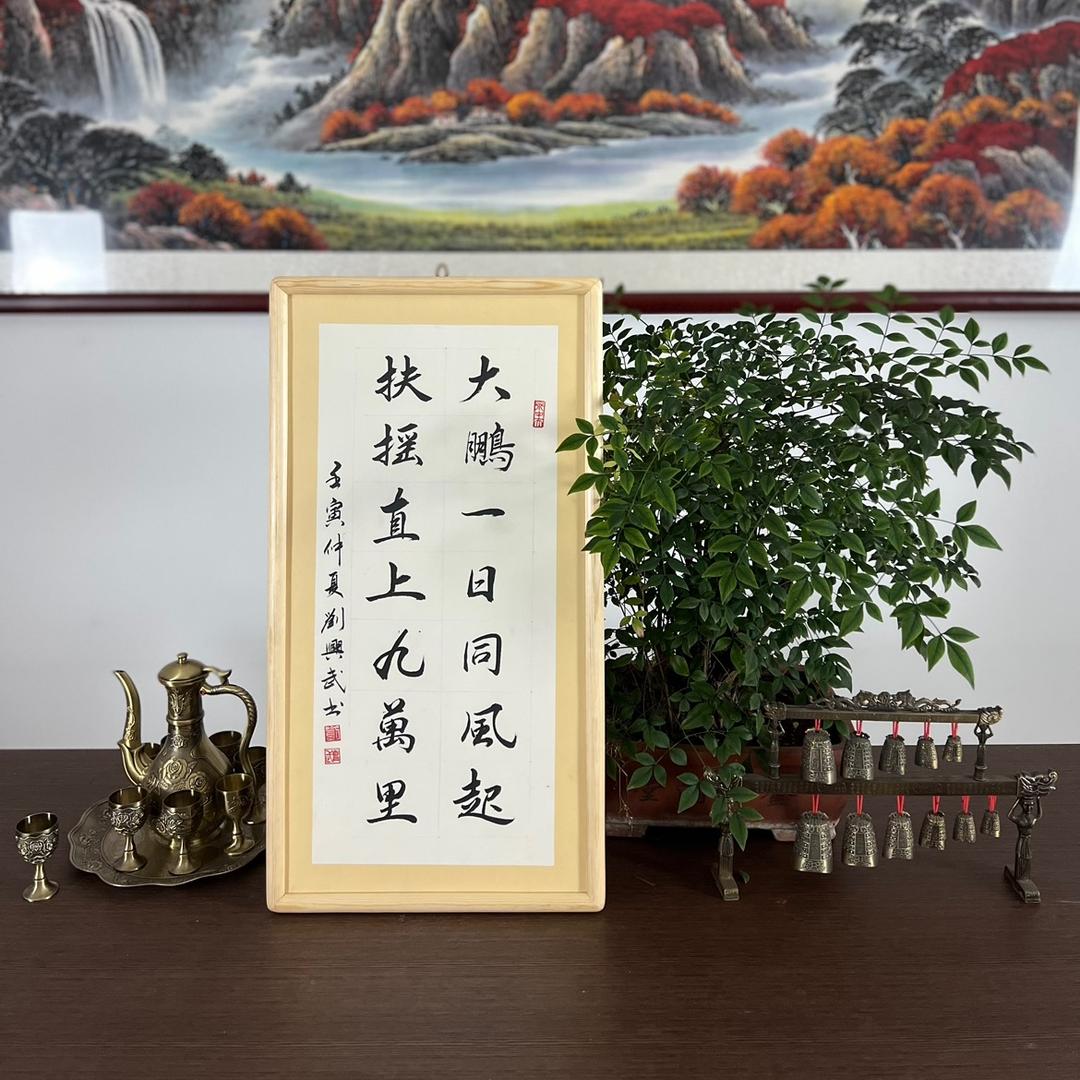 大鵬一日同風起
扶摇直上九萬里
壬寅仲夏劉興武书